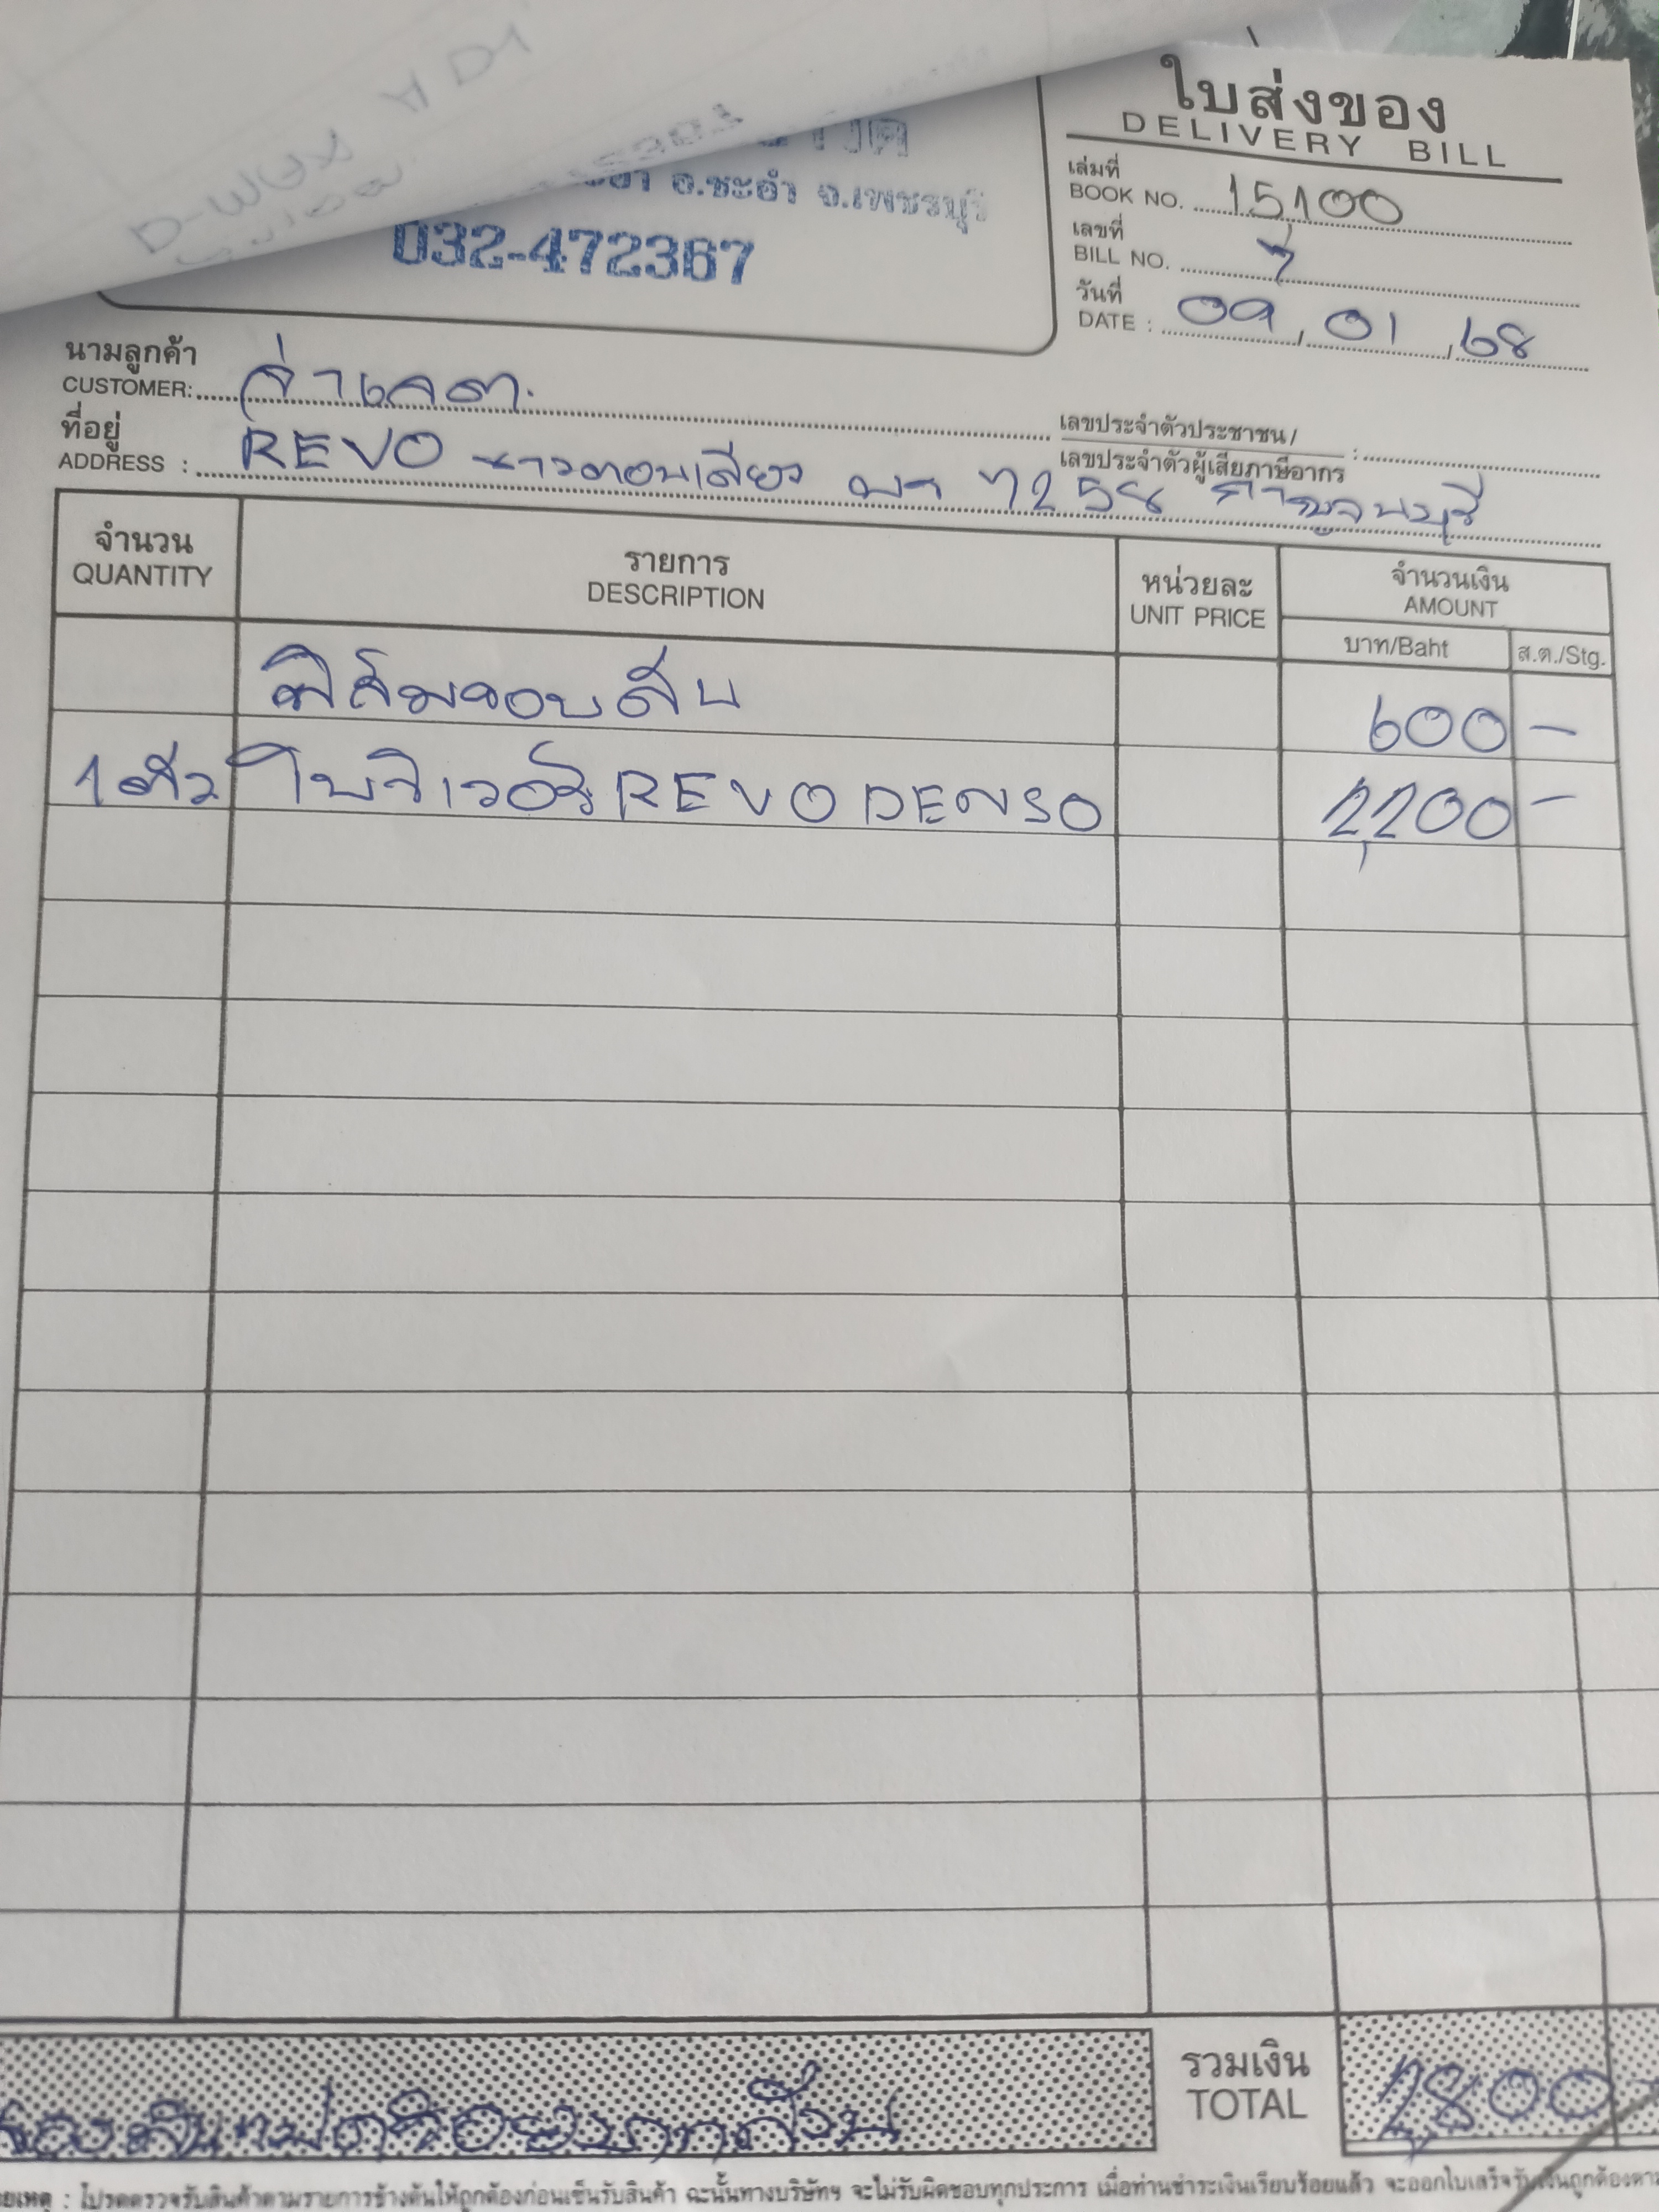 ใบส่งของ
DELIVERY BILL
อ.ชะอำ จ.เพชรบุรี
032-472367
เล่มที่
BOOK NO. 15,100
เลขที่
BILL NO. 7
วันที่
DATE : 09 / 01 / 68
นามลูกค้า
CUSTOMER:
ที่อยู่
ADDRESS : REVO ขาวตอนเดียว 7258 กาญจนบุรี
เลขประจำตัวประชาชน /
เลขประจำตัวผู้เสียภาษีอากร :
จำนวน รายการ หน่วยละ จำนวนเงิน
QUANTITY DESCRIPTION UNIT PRICE AMOUNT
บาท/Baht ส.ต./Stg.
ฟิล์มจอบดับ 600 -
1 ตัว โบริเวอร์ REVO DENSO 2,200 -
รวมเงิน
TOTAL 2,800 -
สองพันแปดร้อยบาทถ้วน
ยเหตุ : โปรดตรวจรับสินค้าตามรายการข้างต้นให้ถูกต้องก่อนเซ็นรับสินค้า ฉะนั้นทางบริษัทฯ จะไม่รับผิดชอบทุกประการ เมื่อท่านชำระเงินเรียบร้อยแล้ว จะออกใบเสร็จรับเงินถูกต้องตาม